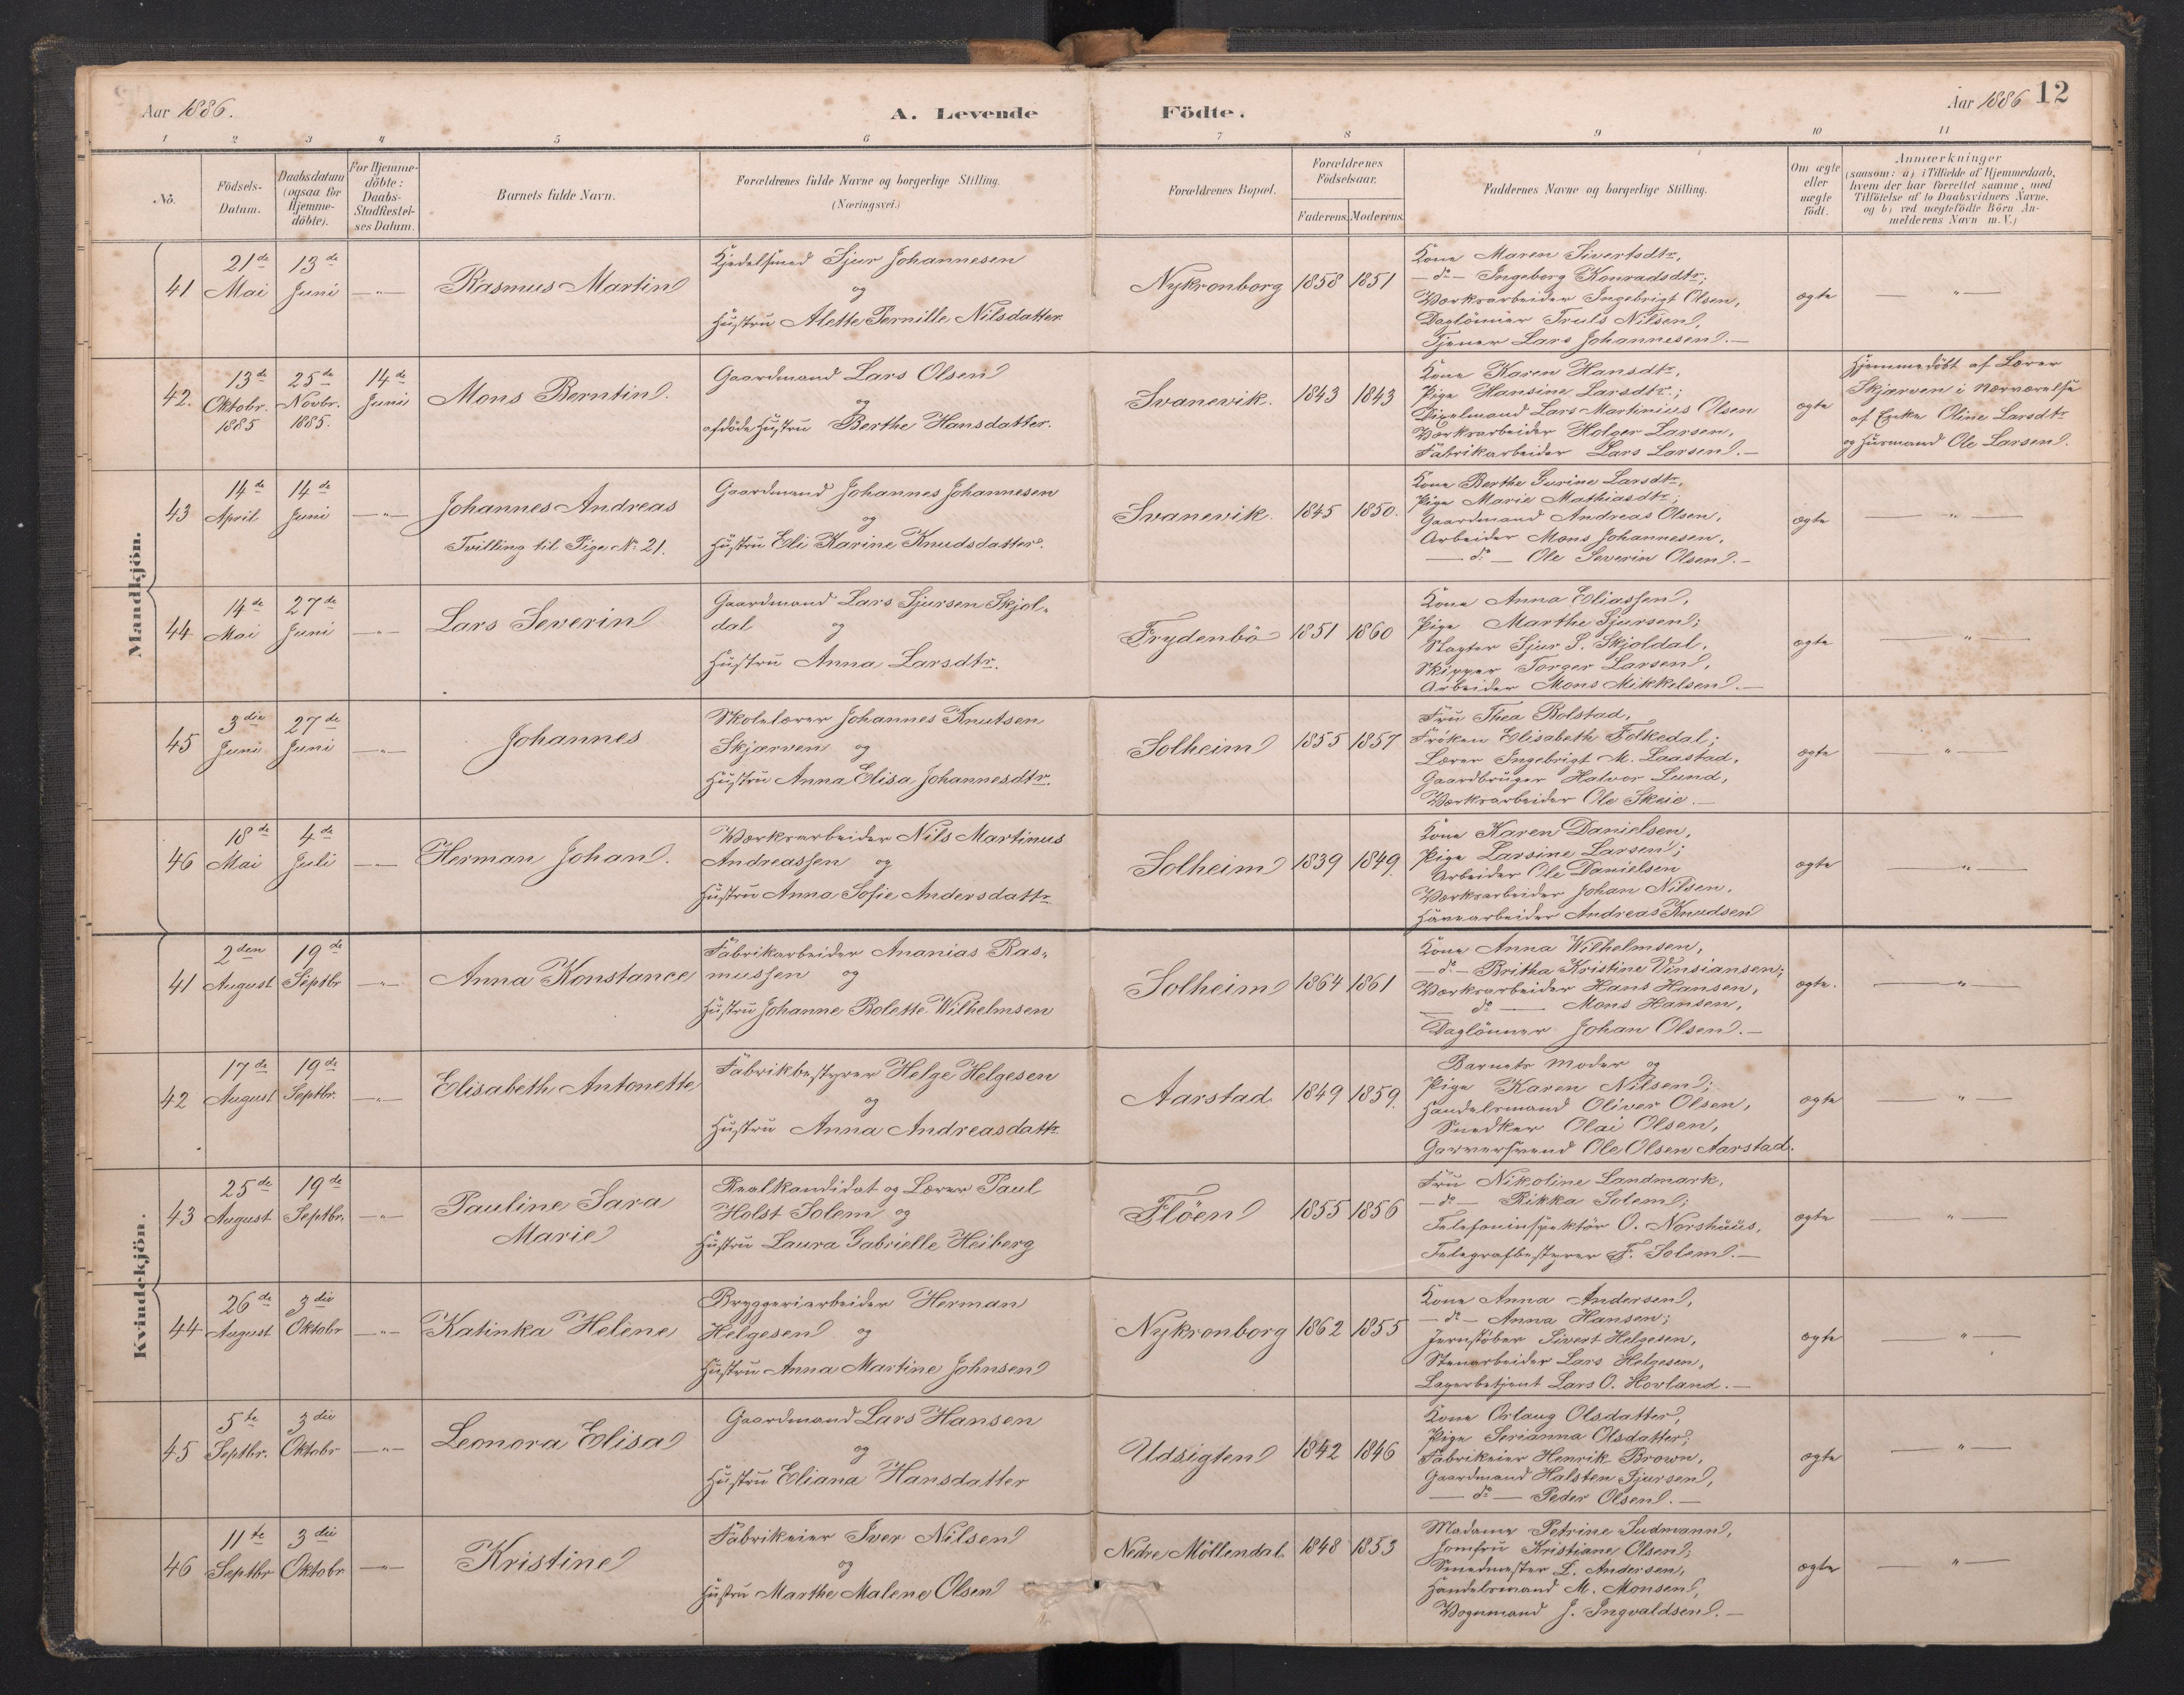 Aar 1886.
A. Levende
Födte.
Aar 1886
12
1 2 3 4 5 6 7 8 9 10 11
No.
Födsels-Datum.
Daabsdatum (ogsaa for Hjemme-döbte).
For Hjemme-döbte: Daabs-Stadfæstel-ses Datum.
Barnets fulde Navn.
Forældrenes fulde Navne og borgerlige Stilling.
(Næringsvei.)
Forældrenes Bopæl.
Forældrenes Födselsaar.
Faderens. Moderens.
Faddernes Navne og borgerlige Stilling.
Om ægte eller uægte födt.
Anmærkninger
(saasom: a) i Tilfælde af Hjemmedaab,
hvem der har forrettet samme, med
Tilföielse af to Daabsvidners Navne,
og b) ved uægtefödte Börn An-
melderens Navn m. V.)
Mandkjön.
41
21de Mai
13de Juni
—"—
Rasmus Martin
Kjedelsmed Sjur Johannesen
og
Hustru Alette Pernille Nilsdatter
Nykronborg
1858
1851
Kone Maren Sivertsdtr,
—do— Ingeborg Konradsdtr;
Værksarbeider Ingebrigt Olsen,
Daglönner Truls Nilsen,
Tjener Lars Johannesen.—
ægte
—"—
42.
13de Oktobr. 1885
25de Novbr. 1885.
14de Juni
Mons Berntin.
Gaardmand Lars Olsen
og
afdöde Hustru Berthe Hansdatter.
Svanevik.
1843
1843
Kone Karen Hansdtr,
Pige Hansine Larsdtr.;
Lars Martinius Olsen
Værksarbeider Holger Larsen,
Fabrikarbeider Lars Larsen.—
ægte
Hjemmedöbt af Lærer
Skjærven i Nærværelse
af Enke Oline Larsdtr
og Husmand Ole Larsen.
43
14de April
14de Juni
—"—
Johannes Andreas
Tvilling til Pige No. 21.
Gaardmand Johannes Johannesen
og
Hustru Eli Karine Knudsdatter.
Svanevik.
1845
1850.
Kone Berthe Gurine Larsdtr,
Pige Marie Mathiasdtr;
Gaardmand Andreas Olsen,
Arbeider Mons Johannesen,
—do— Ole Severin Olsen.—
ægte
—"—
44
14de Mai
27de Juni
—"—
Lars Severin
Gaardmand Lars Sjursen Skjol-
dal og
Hustru Anna Larsdtr.
Frydenbö
1851
1860
Kone Anna Eliassen,
Pige Marthe Sjursen;
Slagter Sjur S. Skjoldal,
Skipper Torger Larsen,
Arbeider Mons Mikkelsen.—
ægte
—"—
45
3die Juni
27de Juni
—"—
Johannes
Skolelærer Johannes Knutsen
Skjærven og
Hustru Anna Elisa Johannesdtr.
Solheim
1855
1857
Fru Thea Bolstad,
Fröken Elisabeth Folkedal;
Lærer Ingebrigt M. Laastad,
Gaardbruger Halvor Lund,
Værksarbeider Ole Skeie.—
ægte
—"—
46
18de Mai
4de Juli
—"—
Herman Johan.
Værksarbeider Nils Martinus
Andreassen og
Hustru Anna Sofie Andersdattr
Solheim
1839
1849.
Kone Karen Danielsen,
Pige Larsine Larsen;
Arbeider Ole Danielsen
Værksarbeider Johan Nilsen,
Andreas Knudsen
ægte
—"—
Kvindekjön.
41
2den August
19de Septbr
—"—
Anna Konstance
Fabrikarbeider Ananias Ras-
mussen og
Hustru Johanne Bolette Wilhelmsen
Solheim
1864
1861
Kone Anna Wilhelmsen,
—do— Britha Kristine Vinsiansen;
Værksarbeider Hans Hansen,
—do— Mons Hansen,
Daglönner Johan Olsen.—
ægte.
—"—
42
17de August
19de Septbr.
—"—
Elisabeth Antonette
Fabrikbestyrer Helge Helgesen
og
Hustru Anna Andreasdattr.
Aarstad
1849
1859.
Barnets Moder og
Pige Karen Nilsen;
Handelsmand Oliver Olsen,
Snedker Olai Olsen,
Garversvend Ole Olsen Aarstad.
ægte
—"—
43
25de August
19de Septbr.
—"—
Pauline Sara
Marie
Realkandidat og Lærer Paul
Holst Solem og
Hustru Laura Gabrielle Heiberg
Flöen
1855
1856
Fru Nikoline Landmark,
—do— Rikka Solem;
Telefoninspektör O. Norshuus,
Telegrafbestyrer F. Solem.—
ægte
—"—
44
26de August
3die Oktobr
—"—
Katinka Helene
Bryggeriarbeider Herman
Helgesen og
Hustru Anna Martine Johnsen
Nykronborg
1862
1855
Kone Anna Andersen,
—do— Anna Hansen;
Jernstöber Sivert Helgesen,
Stenarbeider Lars Helgesen,
Lagerbetjent Lars O. Hovland.—
ægte
—"—
45
5te Septbr.
3die Oktobr
—"—
Leonora Elisa
Gaardmand Lars Hansen
og
Hustru Eliana Hansdatter
Udsigten
1842
1846
Kone Orlaug Olsdatter,
Pige Serianna Olsdatter;
Fabrikeier Henrik Brown,
Gaardmand Halsten Sjursen,
—do— Peder Olsen.—
ægte
—"—
46
11te Septbr
3die Oktobr
—"—
Kristine
Fabrikeier Iver Nilsen
og
Hustru Marthe Malene Olsen
Nedre Möllendal.
1848
1853
Madame Petrine Sudmann,
Jomfru Kristiane Olsen;
Smedmester L. Andersen,
Handelsmand M. Monsen,
Vognmand J. Ingvaldsen.—
ægte
—"—